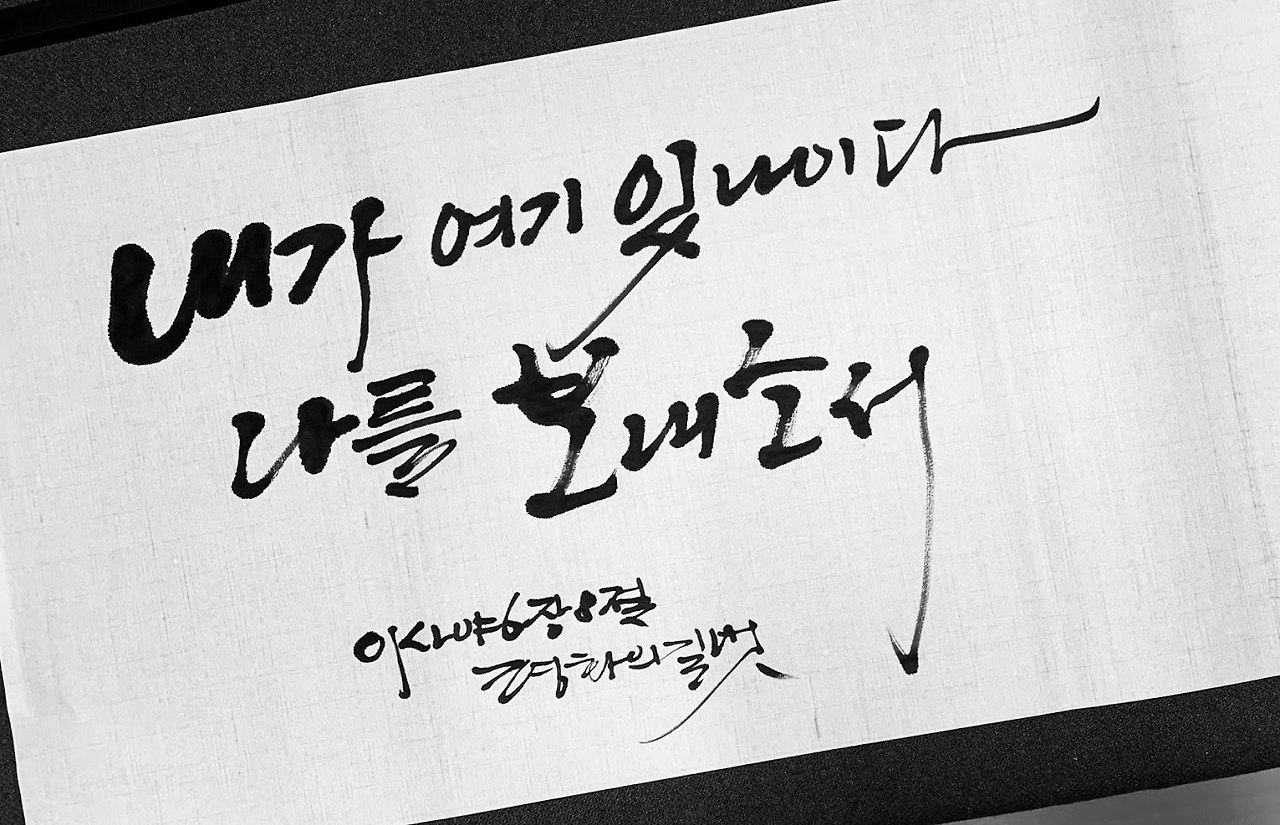 내가 여기 있나이다
나를 보내소서
이사야6장8절
평화의길벗